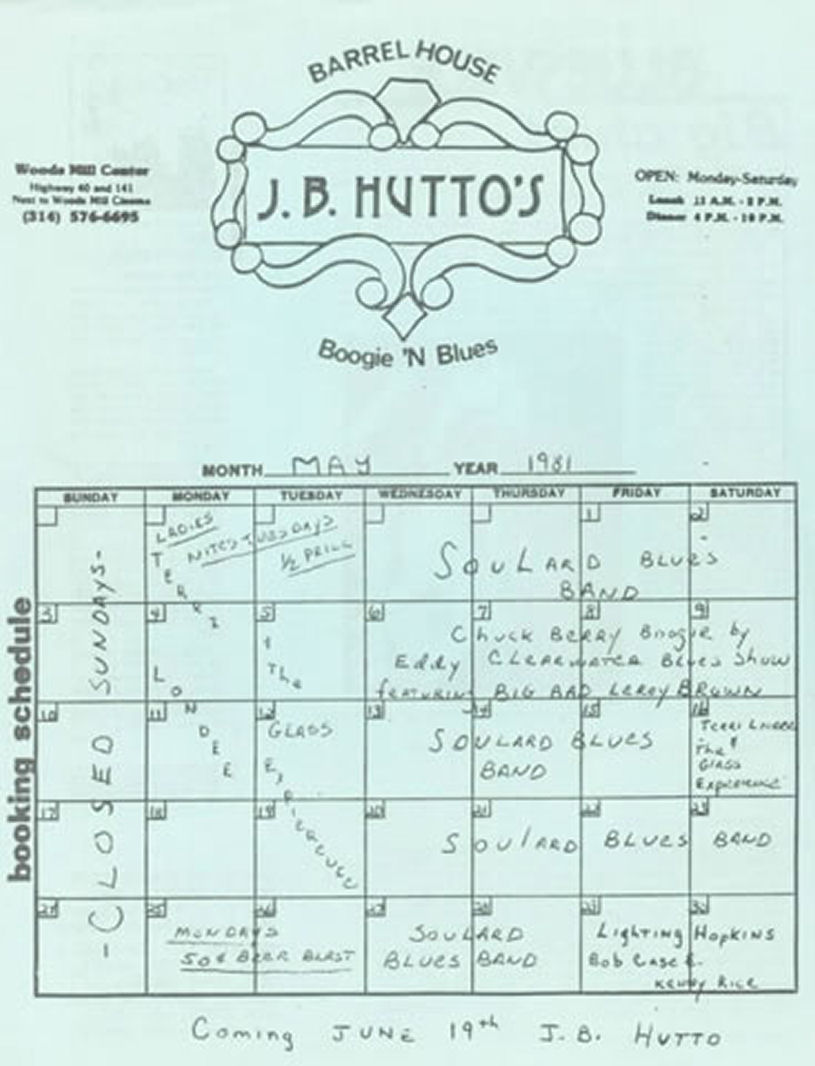 BARREL HOUSE
J. B. HUTTO'S
Boogie 'N Blues
Woods Mill Center
Highway 40 and 141
Next to Woods Mill Cinema
(314) 576-6695
OPEN: Monday-Saturday
Lunch 11 A.M. - 2 P.M.
Dinner 4 P.M. - 10 P.M.
MONTH MAY YEAR 1981
booking schedule
SUNDAY MONDAY TUESDAY WEDNESDAY THURSDAY FRIDAY SATURDAY
- CLOSED SUNDAYS -
LADIES
NITES TUESDAYS
1/2 PRICE
TERRI LONDEE
& The
GLASS
EXPERIENCE
1 2
SOULARD BLUES
BAND
3 4 5 6 7 8 9
Chuck Berry Boogie by
Eddy CLEARWATER BLUES Show
featuring BIG BAD LEROY BROWN
10 11 12 13 14 15 16
SOULARD BLUES
BAND
TERRI
& The
GLASS
Experience
17 18 19 20 21 22 23
SOULARD BLUES BAND
24 25 26 27 28 29 30
MONDAYS
50¢ BEER BLAST
SOULARD
BLUES BAND
Lighting Hopkins
Bob Case &
Kenny Rice
Coming JUNE 19th J. B. HUTTO